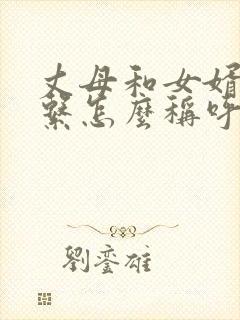 丈母和女婿
繫怎麼稱呼
劉鑾雄